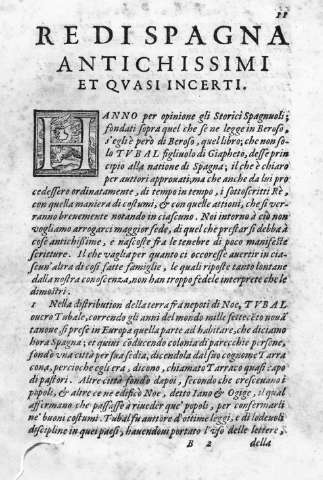 11
RE DI SPAGNA
ANTICHISSIMI
ET QVASI INCERTI.
HANNO per opinione gli Storici Spagnuoli;
fondati sopra quel che se ne legge in Beroso,
s'egli è però di Beroso, quel libro; che non so-
lo TVBAL figliuolo di Giapheto, desse prin
cipio alla natione di Spagna; il che è chiaro
per autori approuati, ma che anche da lui pro
cedessero ordinatamente, di tempo in tempo, i sottoscritti Rè,
con quella maniera di costumi, & con quelle attioni, che si ver-
ranno breuemente notando in ciascuno. Noi intorno à ciò non
vogliamo arrogarci maggior fede, di quel che prestar si debba à
cose antichissime, e nascoste fra le tenebre di poco manifeste
scritture. Il che vaglia per quanto ci occoresse auertir in cia-
scun'altra di così fatte famiglie, le quali riposte tanto lontane
dalla nostra conoscenza, non han troppo fedele interprete che le
dimostri.
1 Nella distribution della terra fra nepoti di Noe, TVBAL
ouero Tubale, correndo gli anni del mondo mille settecēto non ā
tanoue, si pose in Europa quella parte ad habitare, che diciamo
hora Spagna; et quiui cōducendo colonia di parecchie persone,
fondò vna città per sua sedia, dicendola dal suo cognome Tarra
cona, percioche egli era, dicono, chiamato Tarraco quasi capo
di pastori. Altre città fondò dapoi, secondo che cresceuano i
popoli, & altre ce ne edificò Noe, detto Iano & Ogige, il qual
affirmano che passasse à riueder que' popoli, per confermarli
ne' buoni costumi. Tubal fu autore d'ottime leggi, e di lodeuoli
discipline in quei paesi, hauendoui portato l'vso delle lettere,
B 2 della